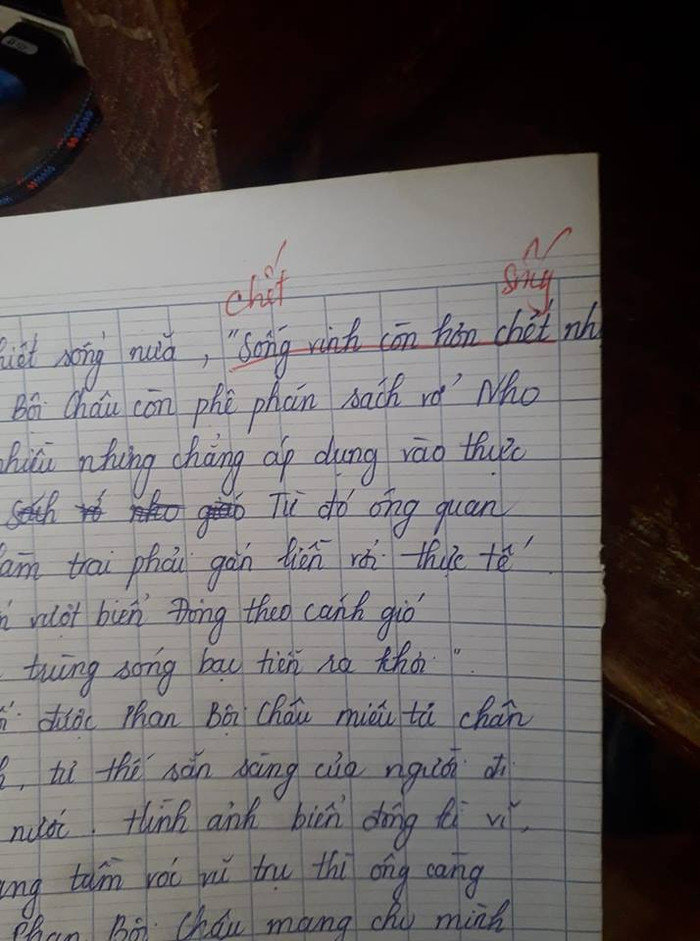 chết sống
thiết sống nữa, "Sống vinh còn hơn chết nh
Bội Châu còn phê phán sách vở Nho
nhiều nhưng chẳng áp dụng vào thực
sách vở nho giáo Từ đó ông quan
làm trai phải gắn liền với thực tế
vượt biển Đông theo cánh gió
trùng sóng bạc tiễn ra khơi".
được Phan Bội Châu miêu tả chân
tư thế sẵn sàng của người đi
nước. Hình ảnh biển đông kì vĩ,
ang tầm với vũ trụ thì ông càng
Phan Bội Châu mang chủ mình